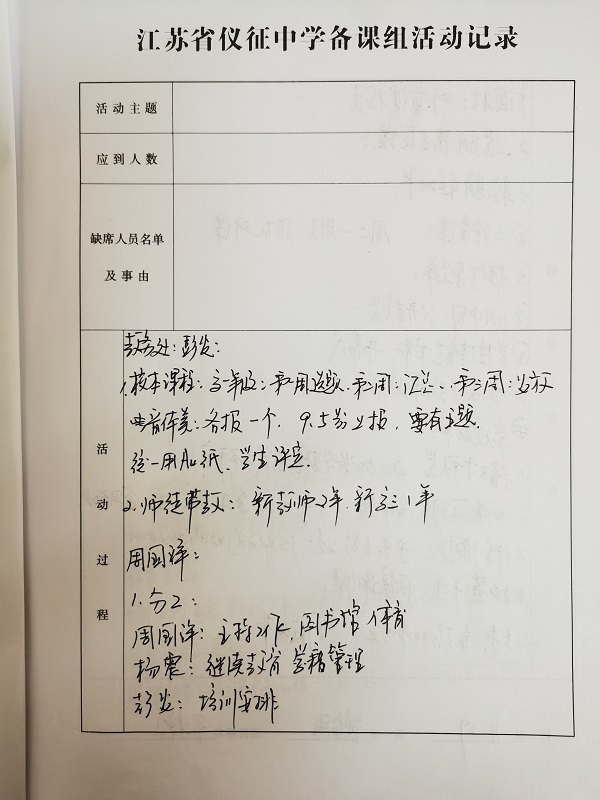 江苏省仪征中学备课组活动记录
活动主题
应到人数
缺席人员名单
及事由
活动过程
教务处:彭发:
1.校本课程:高一年级:第一周选题.第二周:汇总、第三周:公示
音体美:各报一个. 9.5前上报,要有主题.
统一用A4纸、学生评定.
2.师徒带教:新教师2年.新高三1年
周国洋:
1.分工:
周国洋:主持工作、图书馆 体育
杨震:继续教育 学籍管理
彭发:培训安排